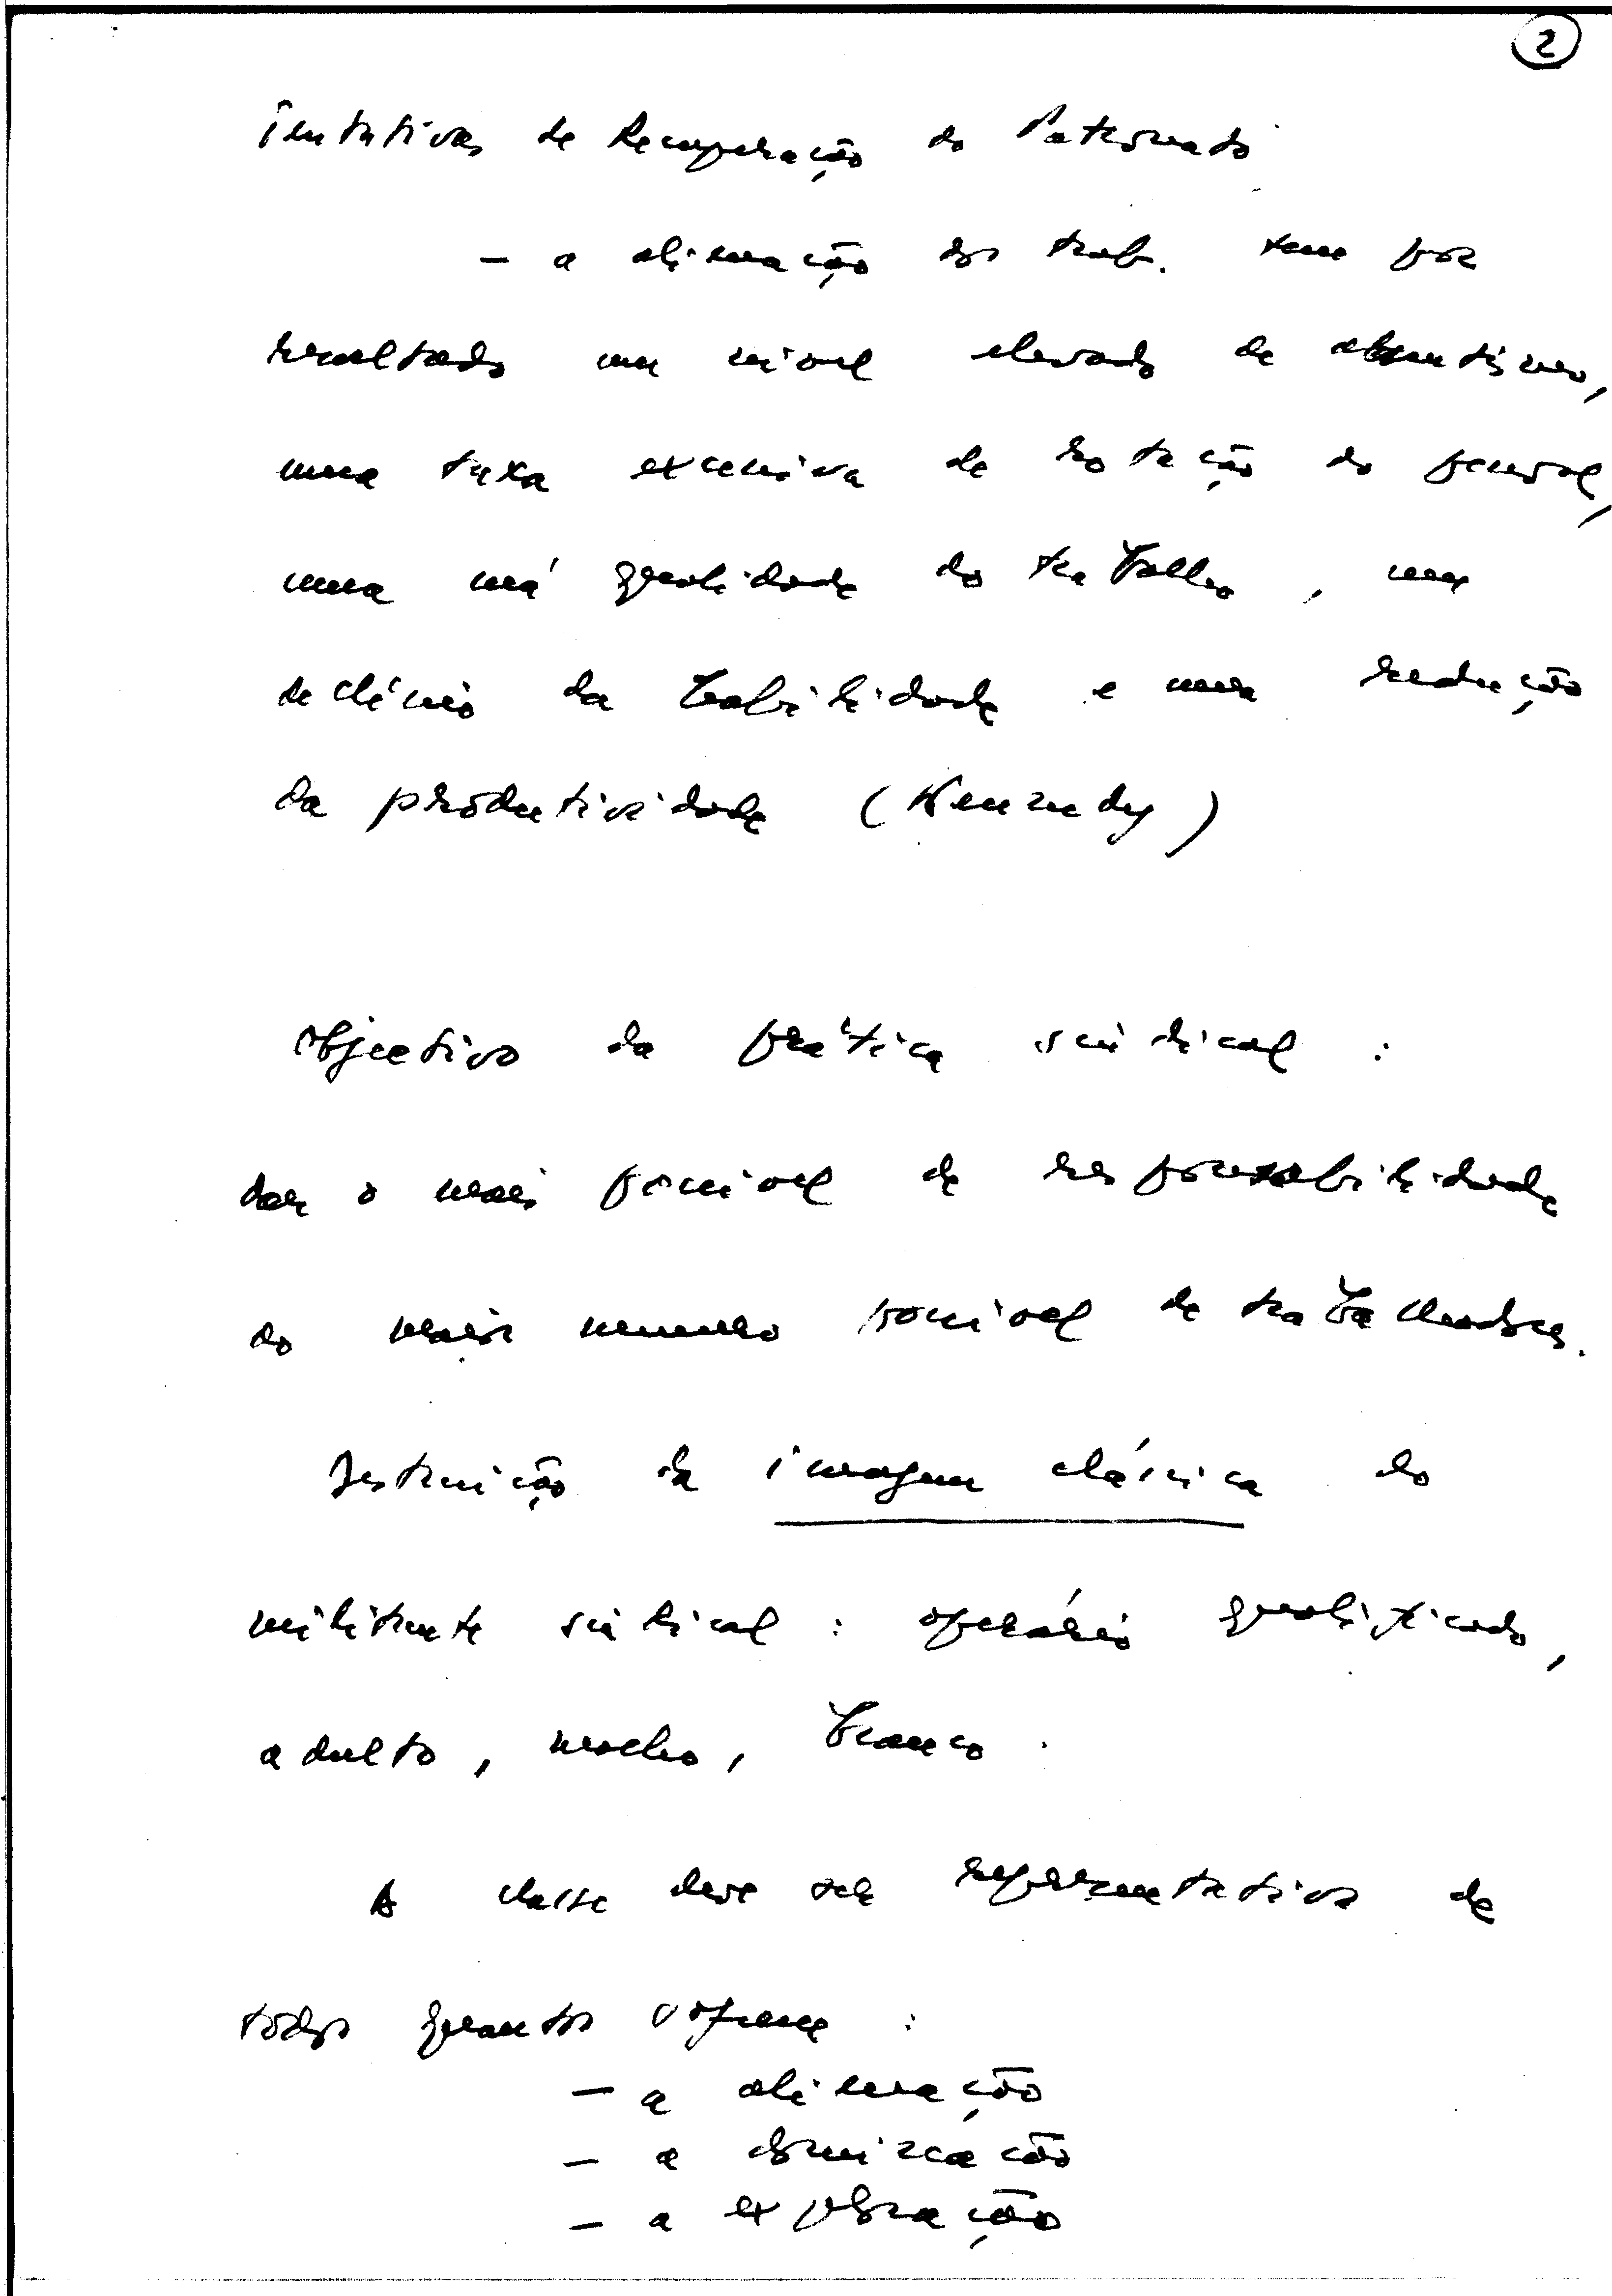 2
Tentativas de Recuperação do Patronato
– a alienação dos trab. tem por
resultado um nível elevado de absentismo,
uma taxa excessiva de rotação do pessoal,
uma má qualidade do trabalho, um
declínio da habilidade e uma redução
da productividade (Kennedy)
Objectivo da prática sindical :
dar o mais possível de responsabilidade
ao maior numero possível de trabalhadores.
Destruição da imagem clássica do
militante sindical : operário qualificado,
adulto, macho, branco.
A classe deve ser representativa de
todos quantos sofrem :
– a alienação
– a dominação
– a exploração